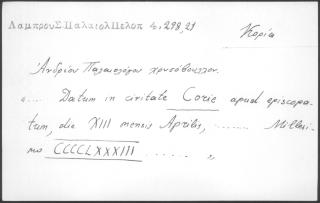 Λαμπρου Σ. Παλαιολ Πελοπ 4, 298, 21
Κορία
Ἀνδρέου Παλαιολόγου χρυσόβουλλον.
"... Datum in civitate Corie apud episcopa-
tum, die XIII mensis Aprilis, ....... Millesi-
mo CCCCLXXXIII ...... "